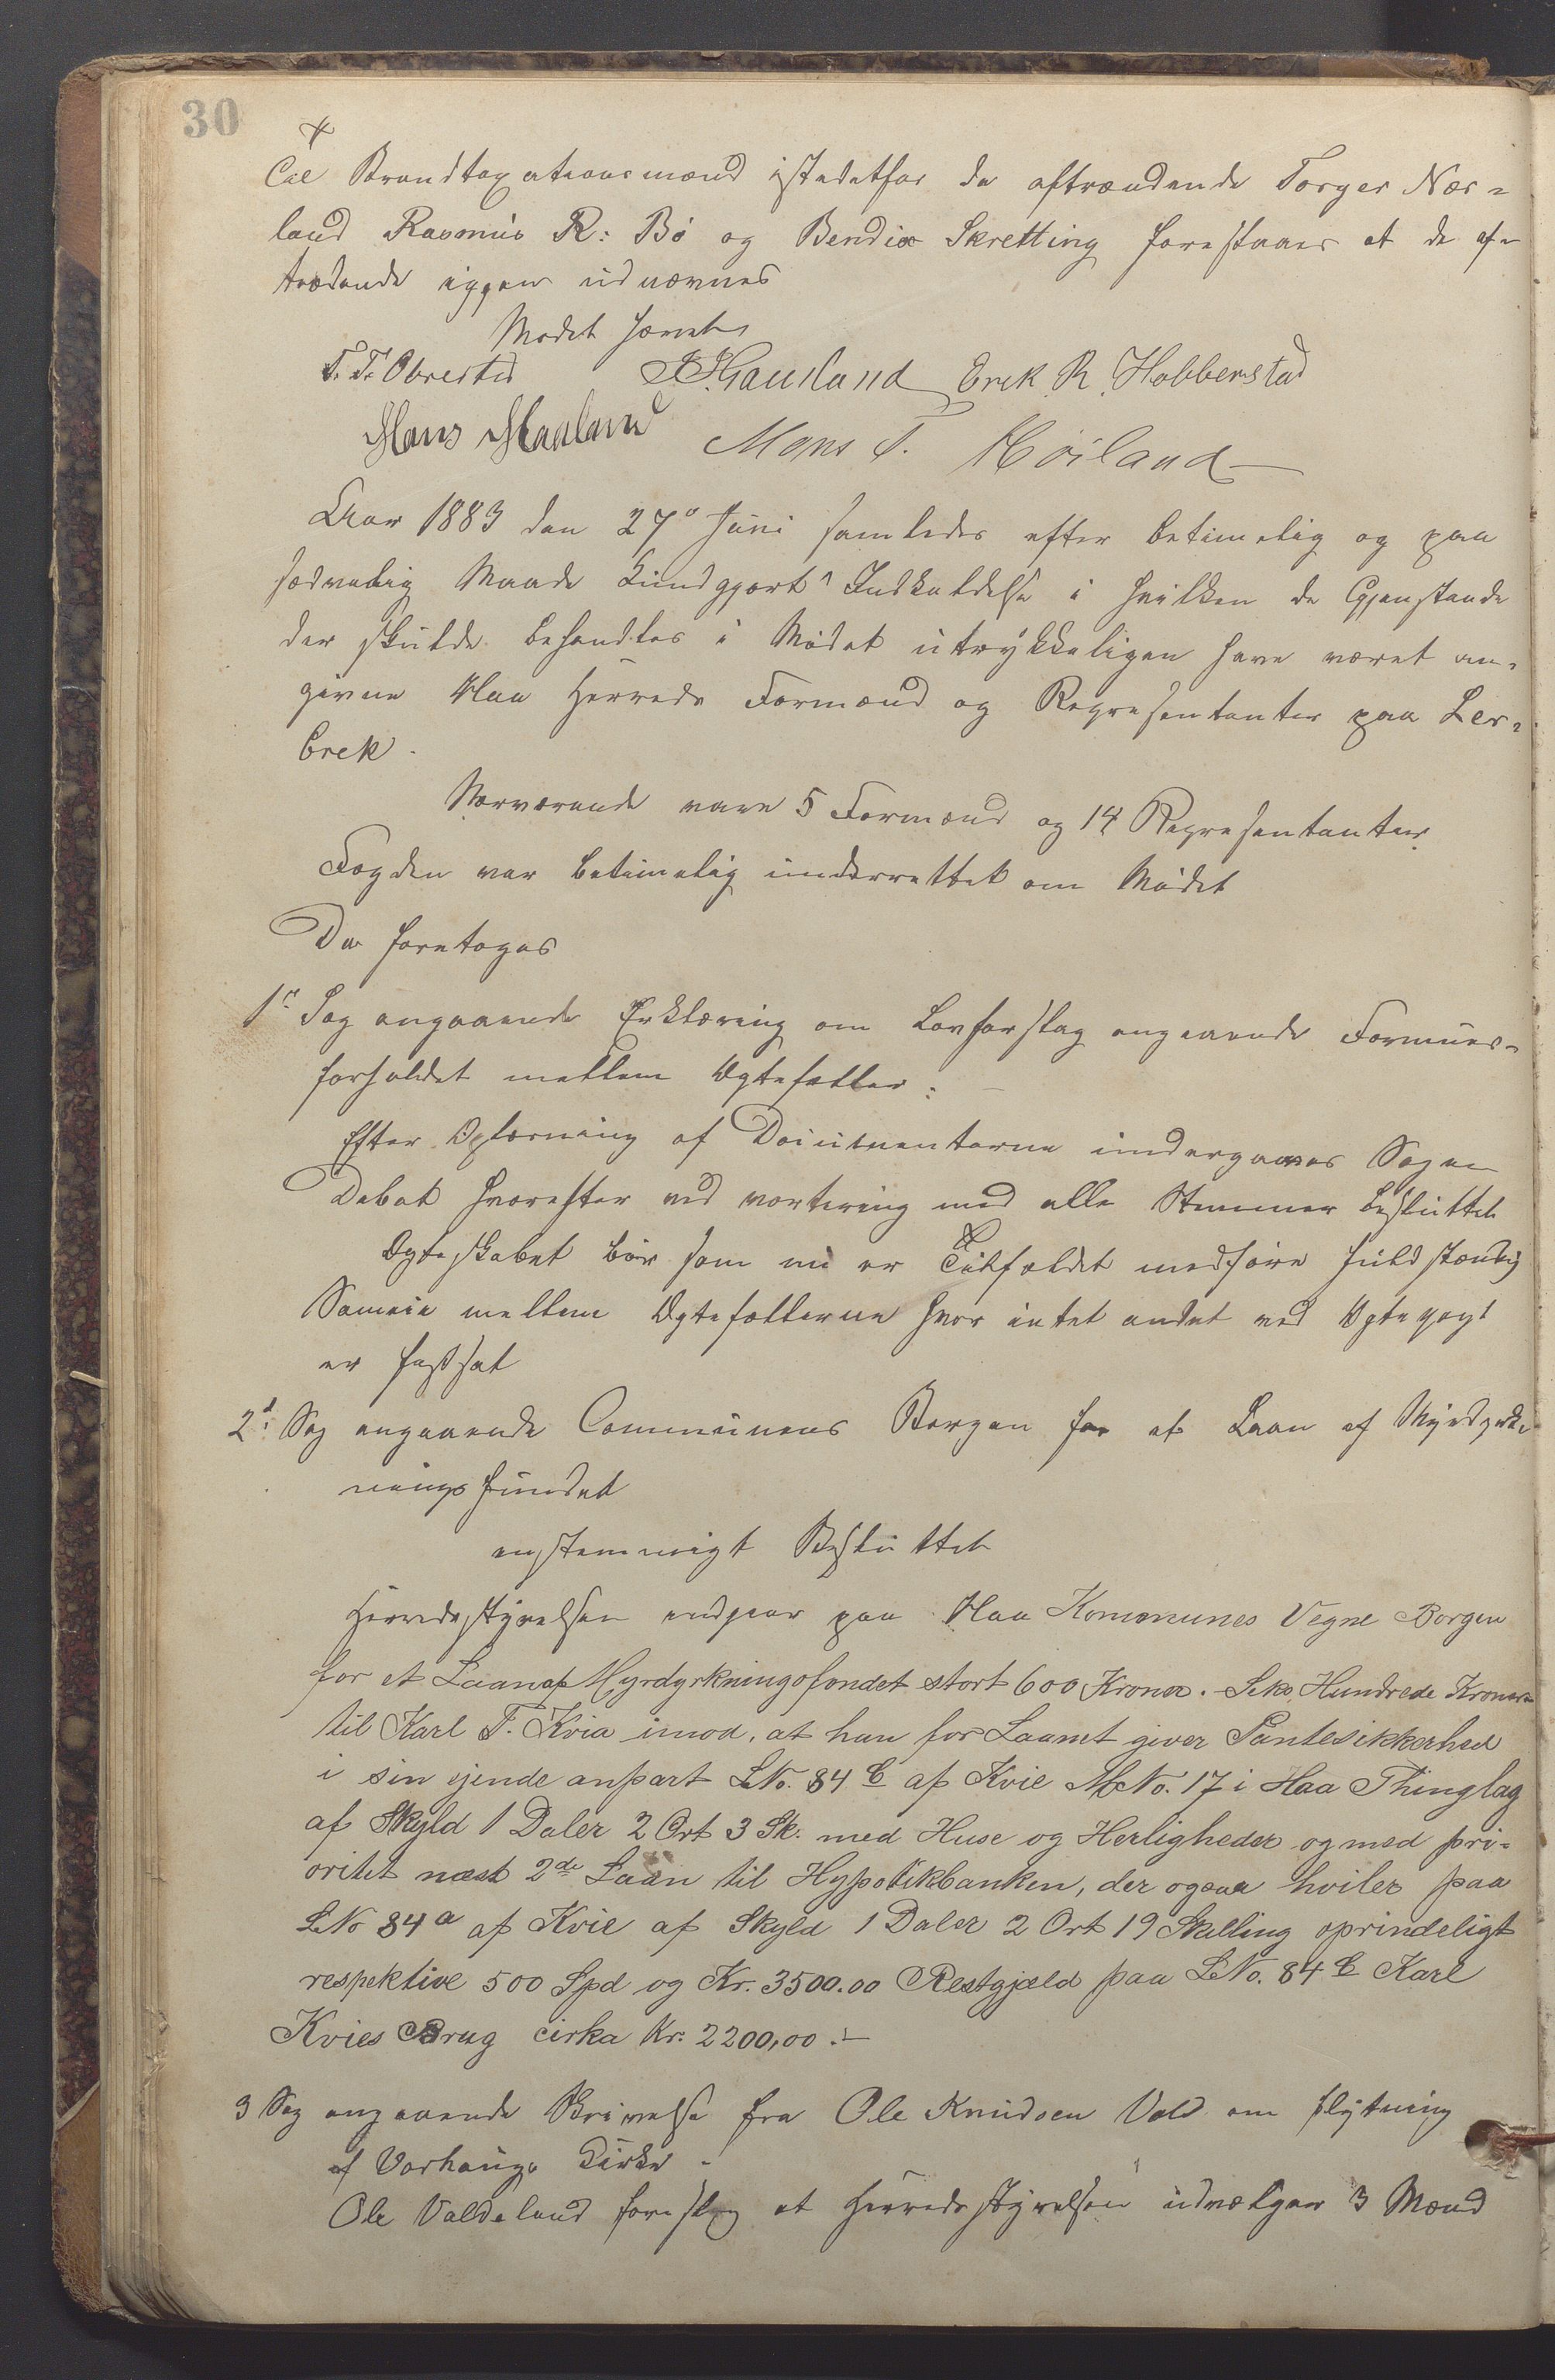 30
Til Brandtaxationsmænd istedetfor de aftrædende Torger Nær=
land Rasmus R: Bø og Bendix Skretting foreslaaes at de af=
trædende iggjen udnævnes
Mødet hævet
T. T. Obrestad J Haarland Erek R. Hobberstad
Hans Haaland Mons T. Høiland
Aar 1883 den 27de Juni samledes efter betimelig og paa
sædvanlig Maade Kundgjort Indkaldelse i hvilken de Gjenstande
der skulde behandles i Mødet utrykkeligen have været an=
givne Haa Herreds Formænd og Representanter paa Ler=
brek.
Nærværende vare 5 Formænd og 14 Representanter.
Fogden var betimelig underrettet om Mødet
Da foretoges
1ste Sag angaaende Erklæring om Lovforslag angaaende Formues=
forholdet mellem Ægtefæller: –
Efter Oplæsning af Documenterne undergaaes Sagen
Debat hvorefter ved vortering med alle Stemmer besluttet
Ægteskabet bør som nu er Tilfældet medføre fuldstændig
Sameie mellem Ægtefællerne hvor intet andet ved Ægtepagt
er fastsat
2d: Sag angaaende Communens Borgen for et Laan af Myrdyrk=
ningsfondet
enstemmigt Besluttet
Herredsstyrelsen indgaar paa Haa Kommunes Vegne Borgen
for et Laan af Myrdyrkningsfondet stort 600 Kroner. – Seks Hundrede Kroner –
til Karl T. Kvia imod, at han for Laanet giver Pantesikkerhed
i sin ejende anpart LNo. 84 b af Kvie MNo. 17 i Haa Thinglag
af Skyld 1 Daler 2 Ort 3 Sk. med Huse og Herligheder og med pri=
oritet næst 2de Laan til Hypotekbanken, der ogsaa hviler paa
LNo 84 a af Kvie af Skyld 1 Daler 2 Ort 19 Skilling oprindeligt
respektive 500 Spd og Kr. 3500.00 Restgjæld paa LNo. 84 b Karl
Kvies Brug cirka Kr. 2200,00. –
3 Sag angaaende Skrivelse fra Ole Knudsen Vold om flytning
af Varhaugs Kirke –
Ole Valdeland foreslog at Herredsstyrelsen udvælger 3 Mænd